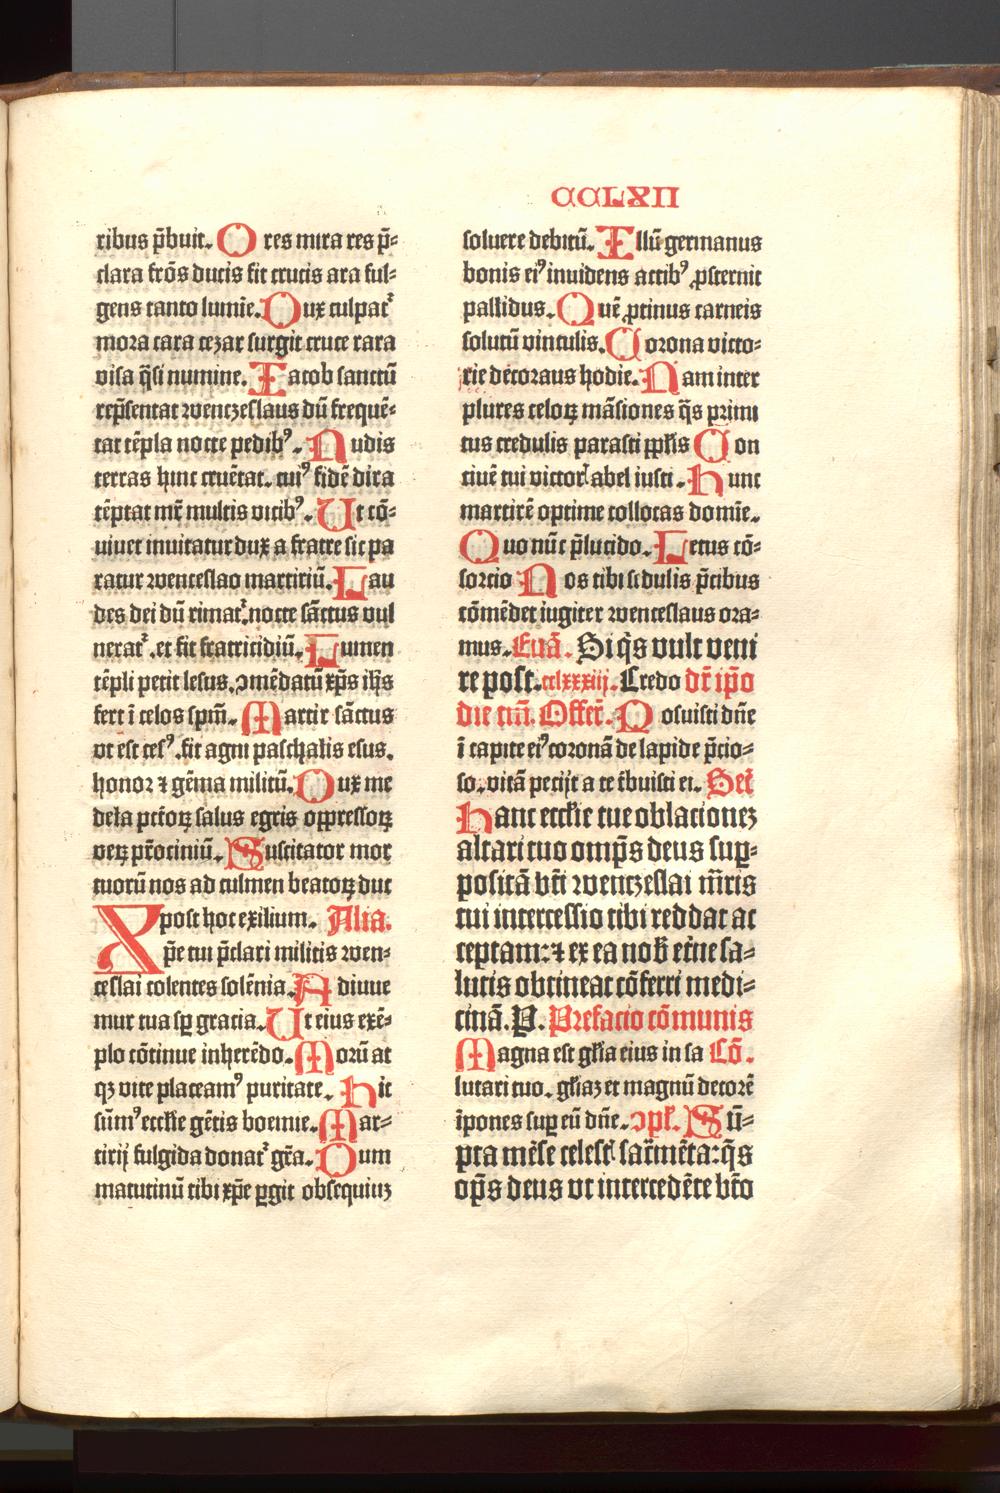 CCLXII
ribus p̄buit. O res mira res p̄⸗
clara frōs ducis fit crucis ara ful⸗
gens tanto lumīe. Dux culpatᷣ
mora cara cezar surgit cruce rara
visa q̄si numine. Iacob sanctū
rep̄sentat wenczeslaus dū frequē⸗
tat tēpla nocte pedibꝰ. Nudis
terras hinc cruētat. cuiꝰ fidē dira
tēptat mr̄ multis vicibꝰ. Ut cō⸗
uiuet inuitatur dux a fratre sic pa
ratur wenceslao martiriū. Lau
des dei dū rimatᷣ. nocte sāctus vul
neratᷣ. et fit fratricidiū. Lumen
tēpli petit lesus. ꝯmēdatū xp̄s ih̄s
fert ī celos spm̄. Martir sāctus
vt est cesꝰ. fit agni paschalis esus.
honor ⁊ gēma militū. Dux me
dela pctōꝝ salus egris oppressoꝝ
veꝝ pr̄ociniū. Suscitator mor
tuorū nos ad culmen beatoꝝ duc
post hoc exilium. Alia.
Xpē tui p̄clari militis wen⸗
ceslai colentes solēnia. Adiuue
mur tua sꝑ gracia. Ut eius exē⸗
plo cōtinue inherēdo. Morū at
qꝫ vite placeamꝰ puritate. Hic
sūmꝰ eccl̄ie gētis boemie. Mar⸗
tirij fulgida donatᷣ gr̄a. Dum
matutinū tibi xp̄e ꝑgit obsequiuꝫ
soluere debitū. Illū germanus
bonis eiꝰ inuidens actibꝰ ꝓsternit
pallidus. Quē ꝓtinus carneis
solutū vinculis. Corona victo⸗
rie decoraus hodie. Nam inter
plures celoꝝ māsiones q̄s primi
tus credulis parasti ꝓp̄l̄is Con
ciuē tui victorꝭ abel iusti. Hunc
martirē optime collocas domīe.
Quo nūc p̄lucido. Letus cō⸗
sorcio Nos tibi sedulis p̄cibus
cōmēdet iugiter wenceslaus ora⸗
mus. Euā. Si q̄s vult veni
re post. cclxxxiij. Credo dr̄ ip̄o
die tm̄. Offer̄. Posuisti dn̄e
ī capite eiꝰ coronā de lapide p̄cio⸗
so. vitā pecijt a te t̄buisti ei. Secr̄
Hanc eccl̄ie tue oblacionez
altari tuo omp̄s deus suꝑ⸗
positā bt̄i wenczeslai m̄ris
tui intercessio tibi reddat ac
ceptam: ⁊ ex ea nob̄ et̄ne sa⸗
lutis obtineat cōferri medi⸗
cinā. P. Prefacio cōmunis
Magna est gl̄ia eius in sa Cō.
lutari tuo. gl̄iaꝫ et magnū decorē
īpones suꝑ eū dn̄e. ꝯpl̄. Sū⸗
pta mēse celestꝭ sac̄mēta: q̄s
op̄s deus vt intercedēte bt̄o